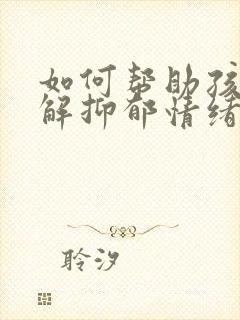 如何帮助孩
解抑郁情绪
聆汐